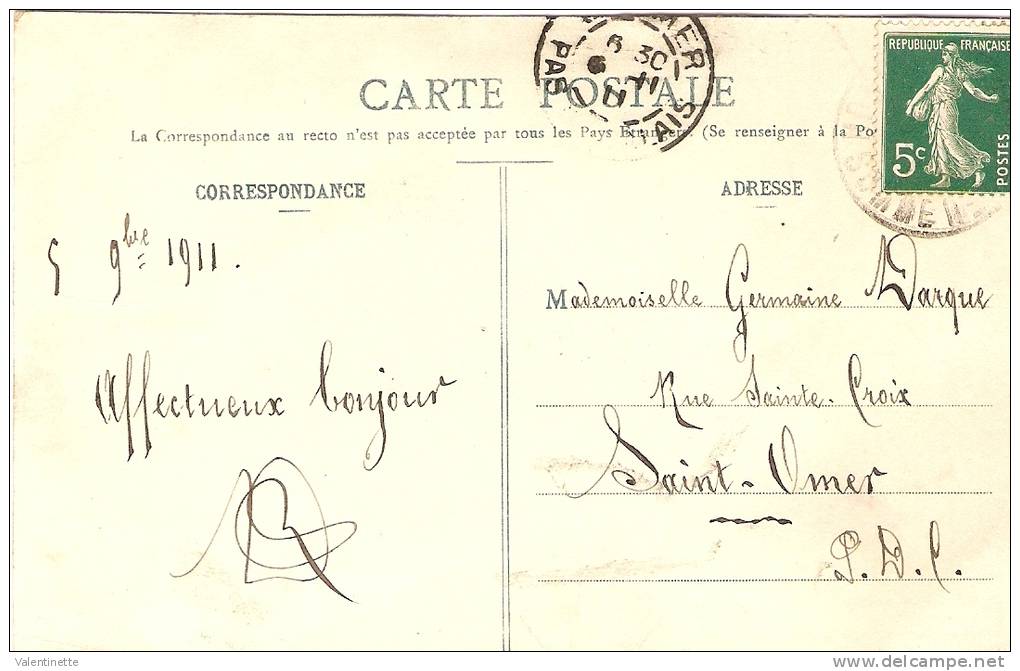 CARTE POSTALE
La Correspondance au recto n'est pas acceptée par tous les Pays Étrangers (Se renseigner à la Po
CORRESPONDANCE
5 9bre 1911.
Affectueux bonjour
ADRESSE
Mademoiselle Germaine Darque
Rue Sainte-Croix
Saint-Omer
P.D.C.
RÉPUBLIQUE FRANÇAISE
5c
POSTES
OMER
6 30
6 11
11
PAS
AIS
SOMME
Valentinette
www.delcampe.net